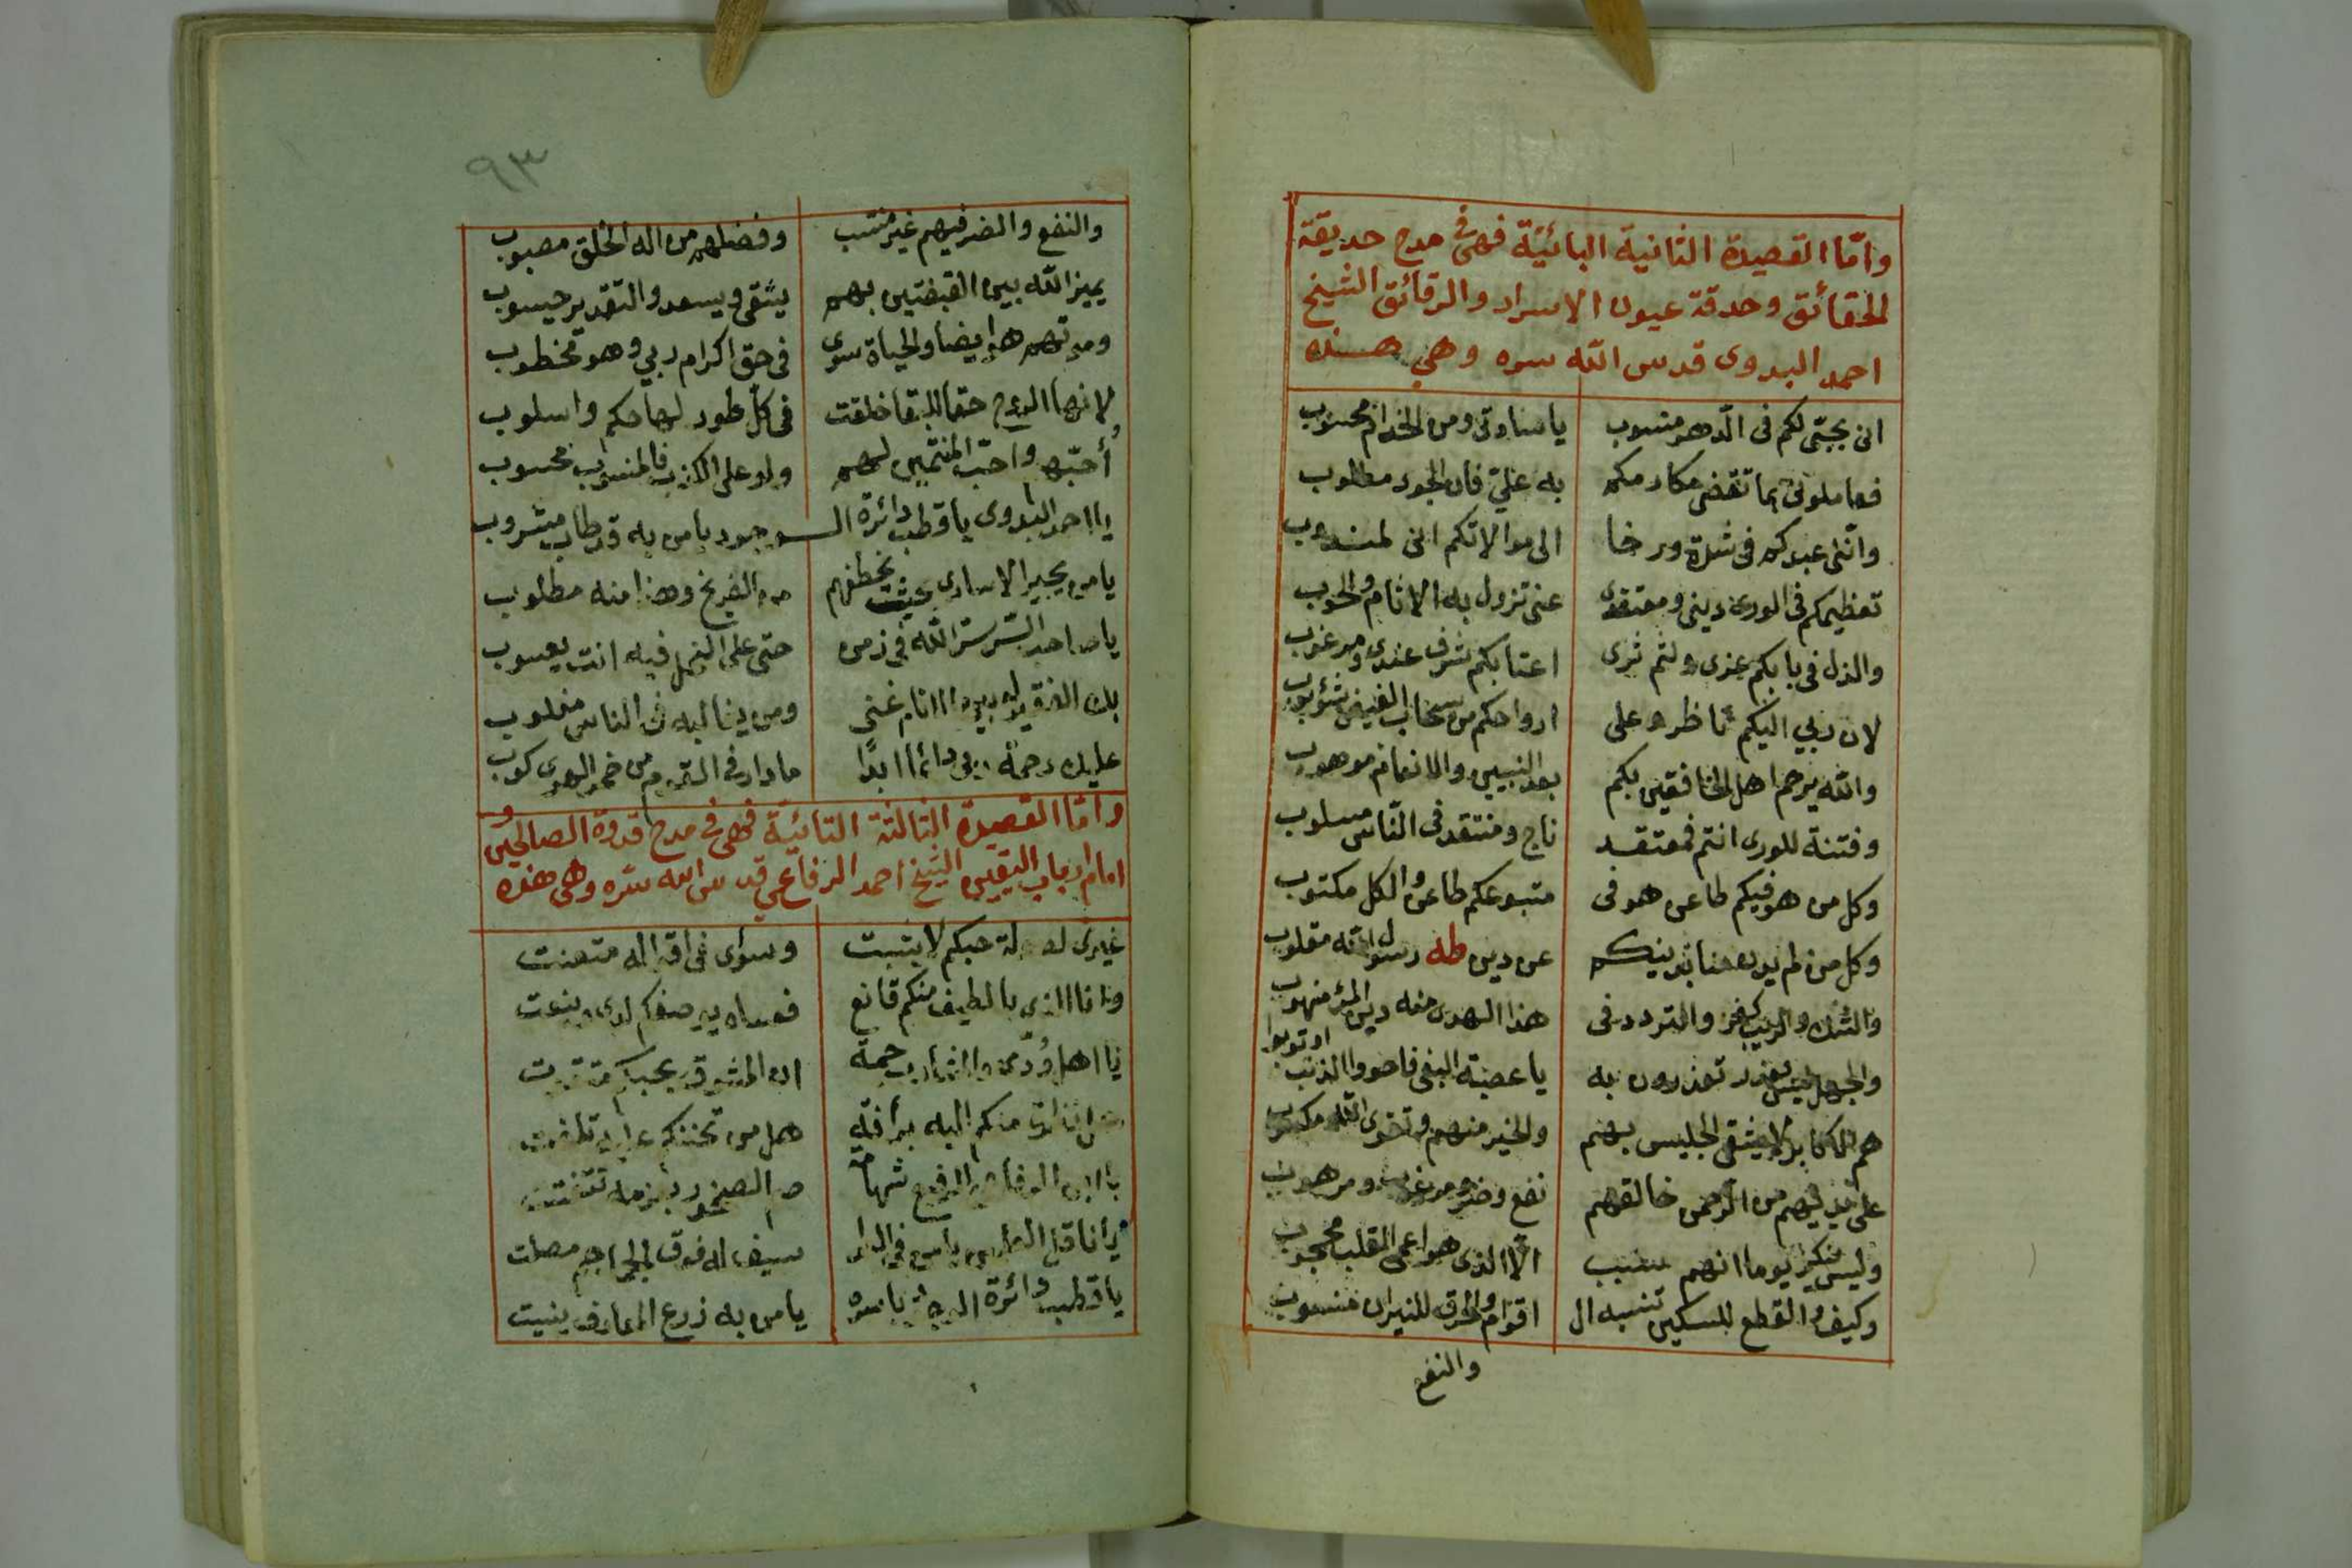 وامّا القصيدة الثانية البائيّة فهى فى مدح حديقة
الحقائق وحدقة عيون الاسرار والرقائق الشيخ
احمد البدوى قدس الله سره وهي هذه
انى بحبّى لكم فى الدهر منسوب يا سادتى ومن الخدام محسوب
فعاملونى بما تقضى مكارمكم به علىّ فان الجود مطلوب
وانّنى عبدكم فى شدة ورخا الى موالاتكم انى لمندوب
تعظيمكم فى الورى دينى ومعتقدى عنى تزول به الاثام والحوب
والذل فى بابكم عزى ولثم ثرى اعتابكم شرف عندى ومرغوب
لان ربي اليكم ناظر وعلى ارواحكم من سحاب الفيض شؤبوب
والله يرحم اهل الخافقين بكم بعد النبيين والانعام موهوب
وفتنة للورى انتم فمعتقد ناج ومنتقد فى النّاس مسلوب
وكل من هو فيكم طاعن هو فى متبوعكم طاعن والكل مكتوب
وكل من لم يوي عن دين طه رسول الله مقلوب
والشك والريب كفر والتردد فى هذا الهدى منه دين المرء منهوب
والجهل ليس بعذر تعذرون به يا عصبة البغى فاصووا الذنب او توبوا
هم الاكابر لا يشقى الجليس بهم والخير منهم وتقوى الله مكسوب
على يديهم من الرحمن خالقهم نفع وضر ومرغوب ومرهوب
وليس ينكر يوما انهم سبب الّا الذى هو اعمى القلب محجوب
وكيف والقطع للسكين تنسبه ال اقوام والحرق للنيران منسوب
والنفع
٩٣
والنفع والضر فيهم غير منتسب وفضلهم من اله الخلق مصبوب
يميز الله بين القبضتين بهم يشقى ويسعد والتقدير محسوب
وموتهم هو ايضا والحياة سوى فى حق اكرام ربي وهو مخطوب
لانها الروح حقا للبقا خلقت فى كل طور لها حكم واسلوب
أحبّهم واحب المنتمين لهم ولو على الكذب فالمنسوب محسوب
يا احمد البدوى يا قطب دائرة الـوجود يا من به قد طاب مشروب
يا من يجير الاسارى بحيث يخطفهم من الفرنج وهذا منه مطلوب
يا صاحب السّر ستر الله فى زمن حتى على النحل فيه انت يعسوب
بك الفقير له بين الانام غنى ومن يغالبه فى الناس مغلوب
عليك رحمة ربى دائما ابدًا ما دار فى القوم من خمر الهوى كوب
وامّا القصيدة الثالثة التائيّة فهى فى مدح قدوة الصالحين و
امام ارباب اليقين الشيخ احمد الرفاعي قدس الله سّره وهى هذه
غيرى لصولة حبكم لا يثبت وسوآى فى اقباله متعنت
وانا الذي بالطيف منكم قانع فعساه يوصفكم لدى وينعت
يا اهل وُدّى والمشارب جمة ان المشوق بحبكم يتقوت
هل من التفات منكم اليه برأفة هل من تحننكم عليه تلفت
يا ابن الرفاعى الرفيع شهامة صم الصخور بعزمه تتفتت
سيف له فوق الجماجم مصلت
يا قطب دائرة الوجود باسره يا من به زرع المعارف ينبت